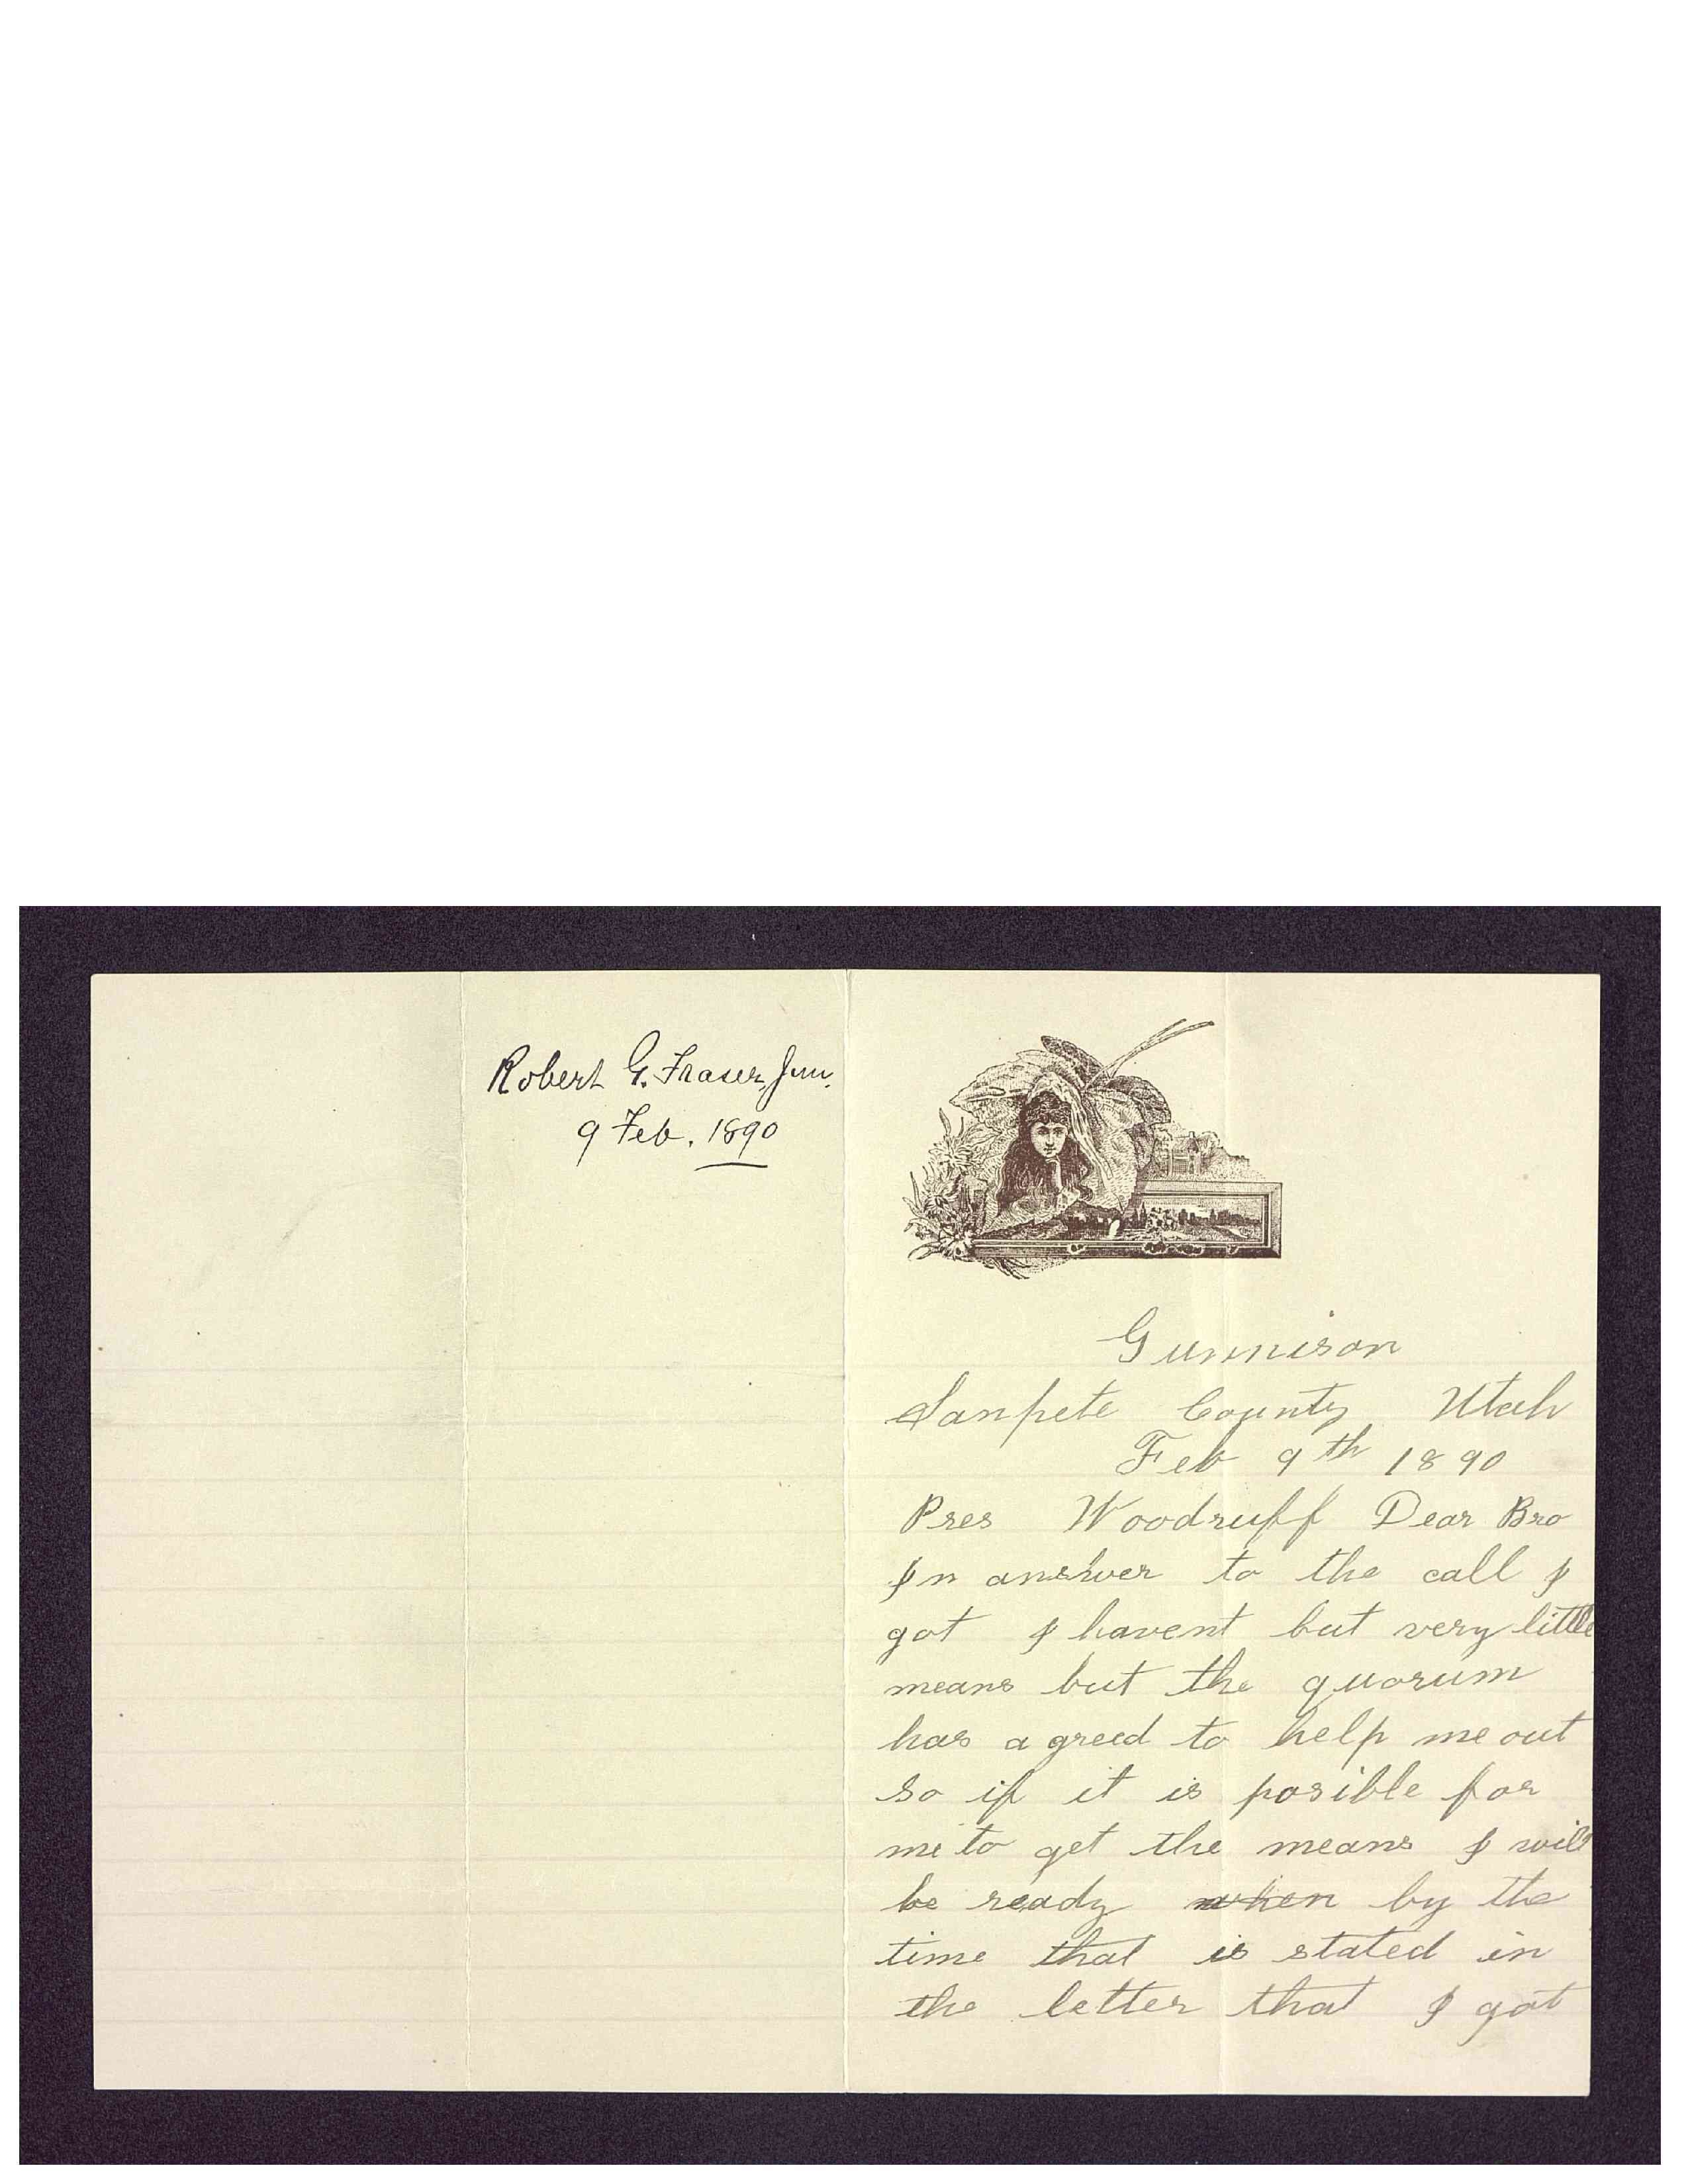 Robert G. Fraser, Jun.
9 Feb. 1890
Gunnison
Sanpete County Utah
Feb 9th 1890
Pres Woodruff Dear Bro
In answer to the call I
got I havent but very little
means but the quorum
has agreed to help me out
so if it is posible for
me to get the means I will
be ready when by the
time that is stated in
the letter that I got